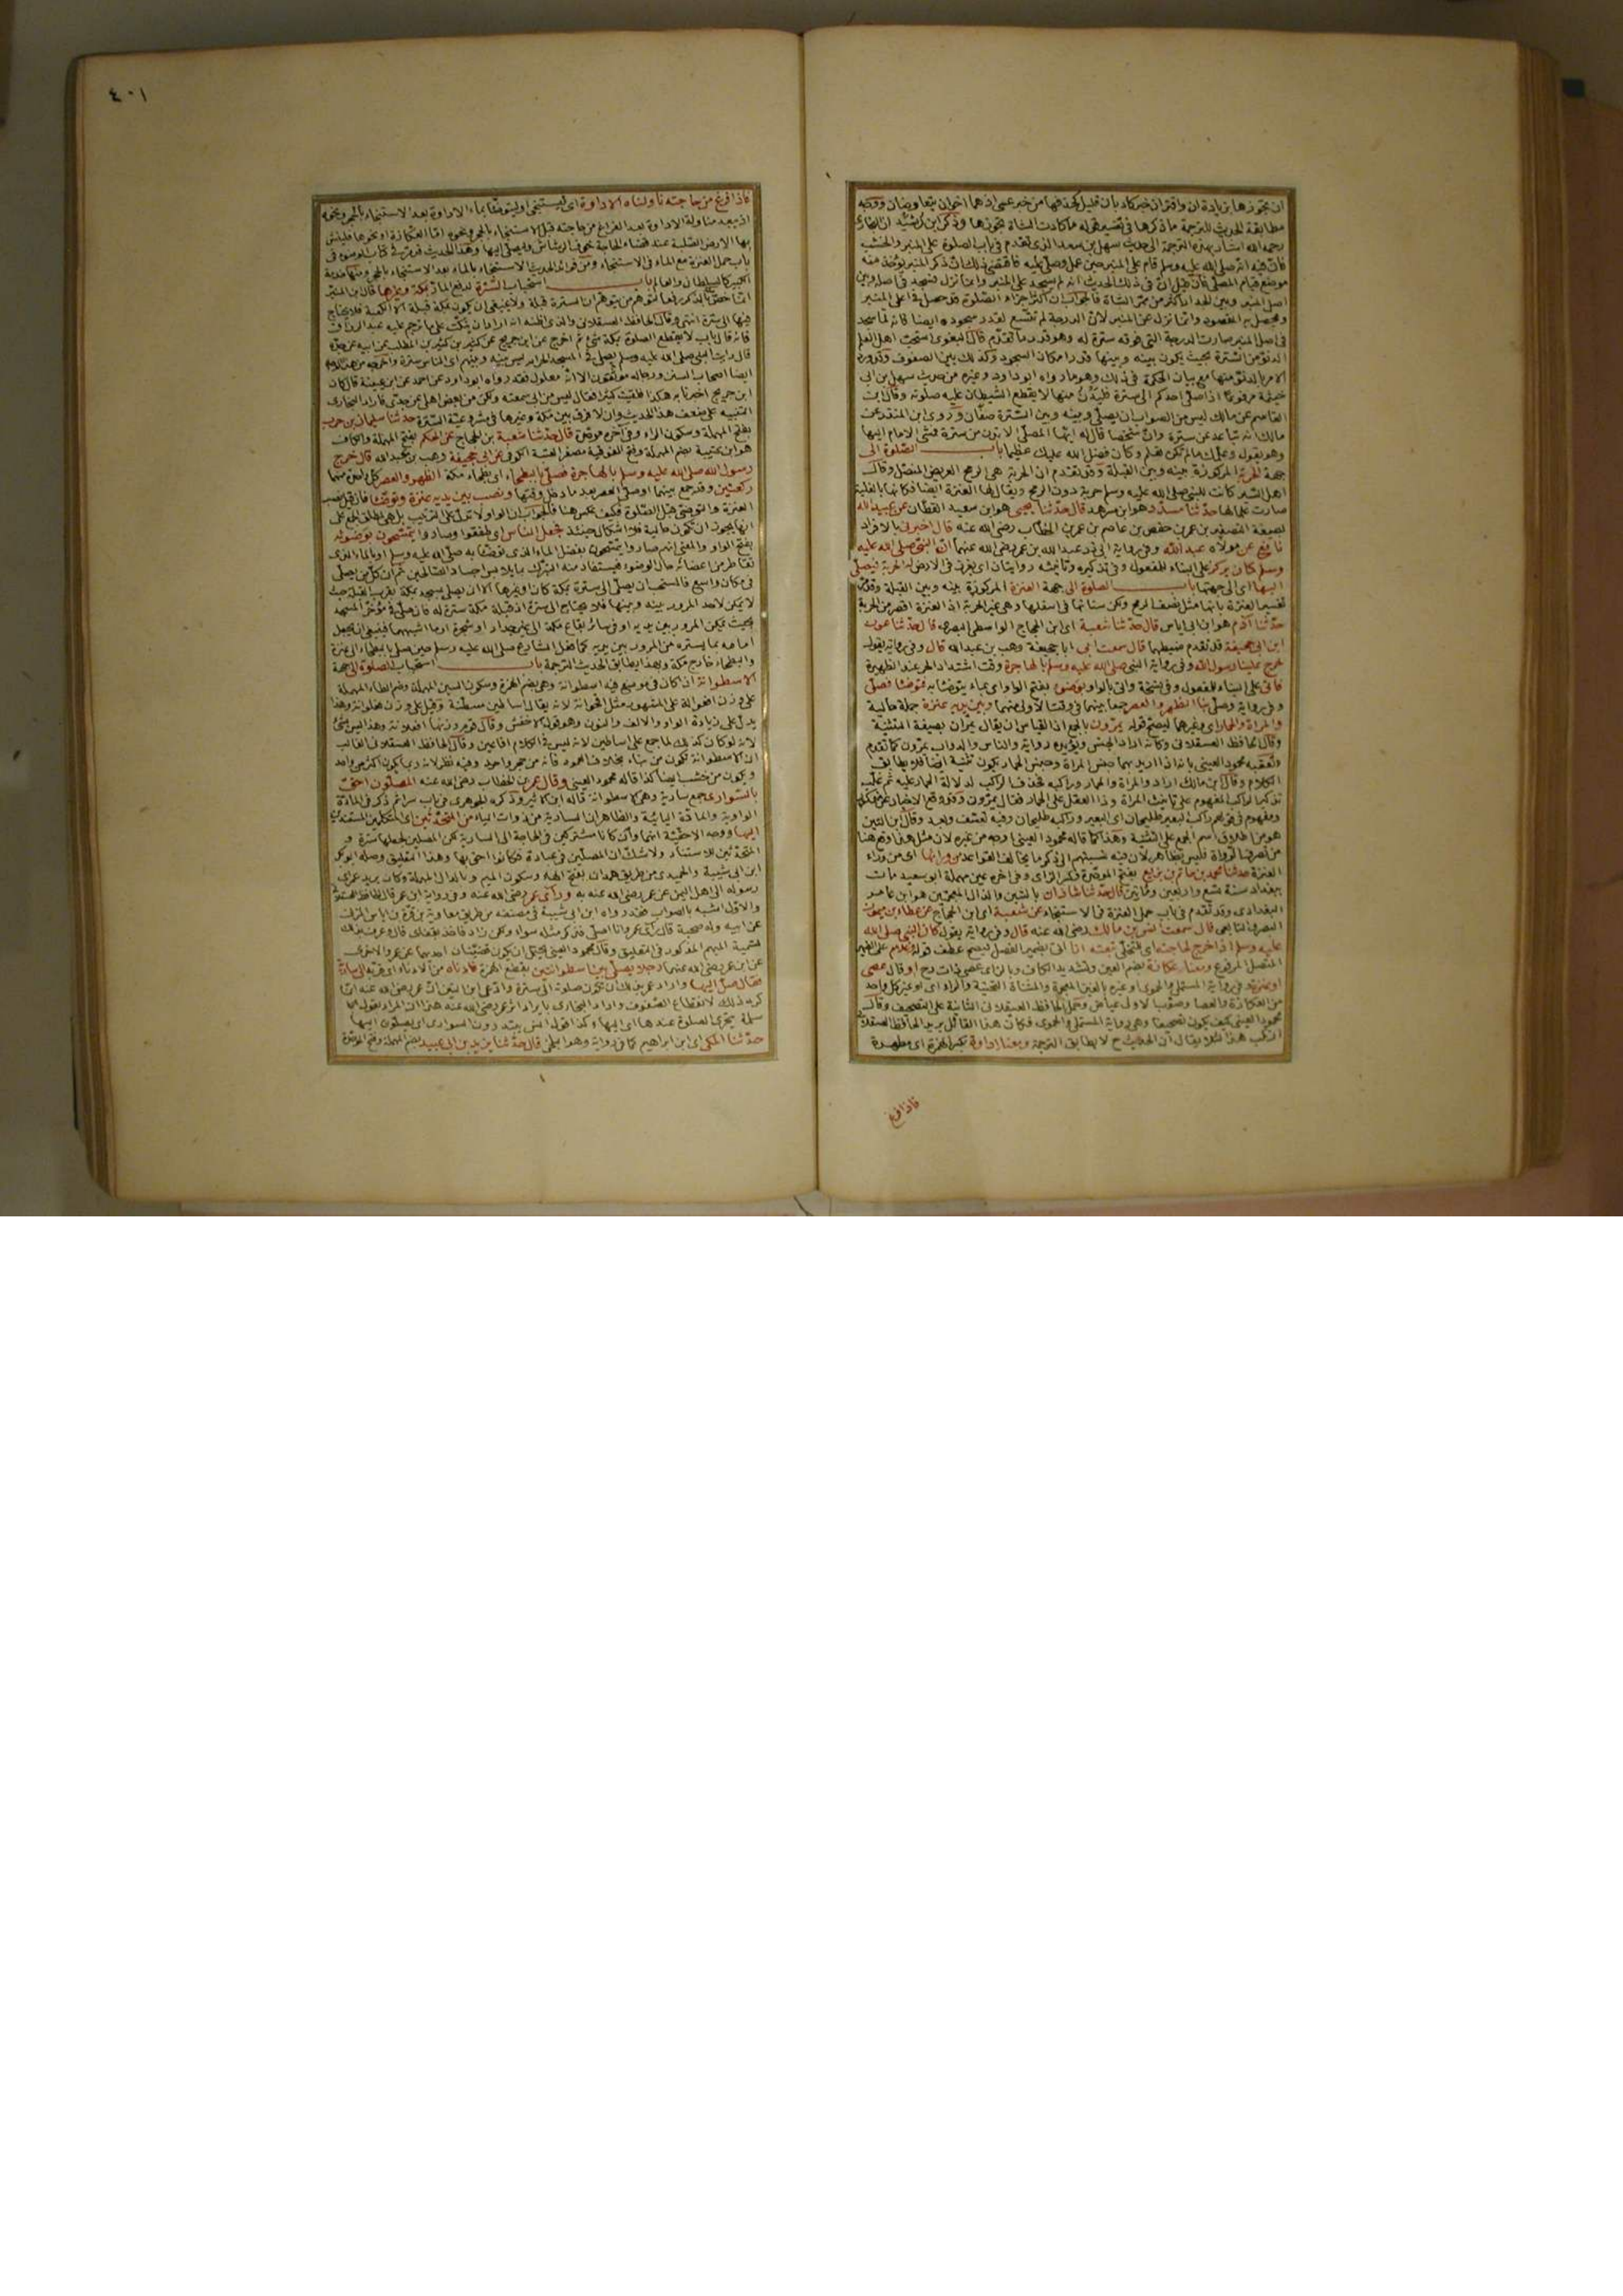 ان تجوزها بزيادة ان واقتران خبر كاد بان قليل كحذفها من خبر عسى اذ هما اخوان يتعاوضان ووجه
مطابقة الحديث للترجمة ما ذكرها في تفسير قوله ما كادت الشاة تجوزها وذكر ابن رشيد ان البخاري
رحمه الله اشار بهذه الترجمة الى حديث سهل بن سعد الذي تقدم في باب الصلوة على المنبر والخشب
فان فيه انه صلى الله عليه وسلم قام على المنبر حين عمل وصلى عليه فاقتضى ذلك ان ذكر المنبر يؤخذ منه
موضع قيام المصلي فان قيل ان في ذلك الحديث انه لم يسجد على المنبر وانما نزل فسجد في اصله وبين
اصل المنبر وبين الجدار اكثر من ممر الشاة فالجواب ان اكثر اجزاء الصلوة قد حصل في اعلى المنبر
وتحصل به المقصود وانما نزل عن المنبر لان الدرجة لم تتسع لقدر سجوده وايضا فانه لما سجد
في اصل المنبر صارت الدرجة التي فوقه سترة له وهو قدر ما تقدم قال البغوي استحب اهل العلم
الدنو من السترة بحيث يكون بينه وبينها قدر امكان السجود وكذلك بين الصفوف وقد ورد
الامر بالدنو منها مع بيان الحكمة في ذلك وهو ما رواه ابو داود وغيره من حديث سهل بن ابي
خيثمة مرفوعا اذا صلى احدكم الى سترة فليدن منها لا يقطع الشيطان عليه صلوته وقال ابن
القاسم عن مالك ليس من الصواب ان يصلي وبينه وبين السترة صفان وروى ابن المنذر عن
مالك انه تباعد عن سترة وان شخصا قال له ايها المصلي الا تدن من سترة فمشى الامام اليها
وهو يقول وعلمك ما لم تكن تعلم وكان فضل الله عليك عظيما باب الصلوة الى
جهة الحربة المركوزة بينه وبين القبلة وقد تقدم ان الحربة هي الرمح العريض النصل وقال
اهل السير كانت للنبي صلى الله عليه وسلم حربة دون الرمح ويقال لها العنزة ايضا فكانها بالغلبة
صارت علما لها حدثنا مسدد هو ابن مسرهد قال حدثنا يحيى هو ابن سعيد القطان عن عبيد الله
بصيغة التصغير بن عمر بن حفص بن عاصم بن عمر بن الخطاب رضي الله عنه قال اخبرني بالافراد
نافع عن مولاه عبد الله وفي رواية ابي ذر عبد الله بن عمر رضي الله عنهما ان النبي صلى الله عليه
وسلم كان يركز على البناء للمفعول وفي تذكيره وتانيثه روايتان اي يغرز في الارض له الحربة فيصلي
اليها اي الى جهتها باب الصلوة الى جهة العنزة المركوزة بينه وبين القبلة وقد مر
تفسير العنزة بانها مثل نصف الرمح ولكن سنانها في اسفلها وهي غير الحربة اذ العنزة اقصر من الحربة
حدثنا آدم هو ابن ابي اياس قال حدثنا شعبة اي ابن الحجاج الواسطي البصري قال حدثنا عون
ابن ابي جحيفة قد تقدم ضبطهما قال سمعت ابي ابا جحيفة وهب بن عبد الله قال وفي رواية يقول
خرج علينا رسول الله وفي رواية النبي صلى الله عليه وسلم بالهاجرة وقت اشتداد الحر عند الظهيرة
فاتي على البناء للمفعول وفي نسخة واتي بالواو بوضوء بفتح الواو اي بماء يتوضأ به فتوضأ فصلى
وفي رواية وصلى بنا الظهر والعصر جمعا بينهما في وقت الاولى منهما وبين يديه عنزة جملة حالية
والمراة والحمار اي وغيرهما ليصح قوله يمرون بالجمع اذ القياس ان يقال يمران بصيغة التثنية
وقال الحافظ العسقلاني وكانه اراد الجنس ويؤيده رواية والناس والدواب يمرون كما تقدم
وتعقبه محمود العيني بانه اذا اريد بهما جنس المراة وجنس الحمار يكون تثنية ايضا فلا يطابق
الكلام وقال ابن مالك اراد والمراة والحمار وراكبه فحذف الراكب لدلالة الحمار عليه ثم غلب
تذكير الراكب المفهوم على تانيث المراة وذا العقل على الحمار فقال يمرون وقد وقع الاخبار عن مذكور
ومفهوم في قولهم راكب البعير طليحان اي البعير وراكبه طليحان وفيه تعسف وبعد وقال ابن التين
هو من اطلاق اسم الجمع على التثنية وهذا كما قاله محمود العيني اوجه من غيره لان مثل هذا وقع هنا
من تصرف الرواة فليس بظاهر لان فيه نسبتهم الى ذكر ما يخالف القواعد من ورائها اي من وراء
العنزة حدثنا محمد بن حاتم بن بزيع بفتح الموحدة وكسر الزاي وفي اخره عين مهملة ابو سعيد مات
ببغداد سنة تسع واربعين ومائتين قال حدثنا شاذان بالشين والذال المعجمتين هو ابن عامر
البغدادي وقد تقدم في باب حمل العنزة في الاستنجاء عن شعبة اي ابن الحجاج عن عطاء بن ميمونة
البصري التابعي قال سمعت انس بن مالك رضي الله عنه قال وفي رواية يقول كان النبي صلى الله
عليه وسلم اذا خرج لحاجته اي للتخلي تبعته انا اتى بضمير الفصل ليصح عطف قوله وغلام على الضمير
المتصل المرفوع ومعنا عكازة بضم العين وتشديد الكاف وبالزاي عصى ذات زج او قال عصى
او عنزة وفي رواية المستملي والحموي او غيره بالغين المعجمة والمثناة التحتية والراء اي او غير كل واحد
من العكازة والعصا وصوب الاول عياض وحمل الحافظ العسقلاني الثانية على التصحيف وقال
محمود العيني كيف يكون تصحيفا وهي رواية المستملي والحموي فكان هذا القائل يريد الحافظ العسقلاني
ارتكب هذا لئلا يقال ان الحديث ح لا يطابق الترجمة ومعنا اداوة بكسر الهمزة اي مطهرة
فاذا فرغ
٤٠١
فاذا فرغ من حاجته ناولناه الاداوة اي ليستنجي او ليتوضأ بماء الاداوة بعد الاستنجاء بالحجر ونحوه
اذ يبعد مناولة الاداوة بعد الفراغ من حاجته قبل الاستنجاء بالحجر ونحوه اما العكازة او نحوها فلينبش
بها الارض الصلبة عند قضاء الحاجة خوف الرشاش وليصلي اليها وهذا الحديث قد مر في كتاب الوضوء في
باب حمل العنزة مع الماء في الاستنجاء ومن فوائد الحديث الاستنجاء بالماء بعد الاستنجاء بالحجر ومنها خدمة
الكبير كالسلطان والعالم باب استحباب السترة لدفع المار بمكة وغيرها قال ابن المنير
انما خص مكة بالذكر دفعا لتوهم من يتوهم ان السترة قبلة ولا ينبغي ان يكون بمكة قبلة الا الكعبة فلا يحتاج
فيها الى سترة انتهى وقال الحافظ العسقلاني والذي اظنه انه اراد ان ينكت على ما ترجم عليه عبد الرزاق
فانه قال باب لا يقطع الصلوة بمكة شيء ثم اخرج عن ابن جريج عن كثير بن كثير بن المطلب عن ابيه عن جده
قال رايت النبي صلى الله عليه وسلم يصلي في المسجد الحرام ليس بينه وبينهم اي الناس سترة واخرجه من هذا الوجه
ايضا اصحاب السنن ورجاله موثقون الا انه معلول فقد رواه ابو داود عن احمد عن ابن عيينة قال كان
ابن جريج اخبرنا به هكذا فلقيت كثيرا فقال ليس من ابي سمعته ولكن من بعض اهلي عن جدي فاراد البخاري
التنبيه على ضعف هذا الحديث وان لا فرق بين مكة وغيرها في مشروعية السترة حدثنا سليمان بن حرب
بفتح المهملة وسكون الراء وفي آخره موحدة قال حدثنا شعبة بن الحجاج عن الحكم بفتح المهملة والكاف
هو ابن عتيبة بضم المهملة وفتح الفوقية مصغر العتبة الكوفي عن ابي جحيفة وهب بن عبد الله قال خرج
رسول الله صلى الله عليه وسلم بالهاجرة فصلى بالبطحاء اي بطحاء مكة الظهر والعصر كل واحدة منهما
ركعتين وقد جمع بينهما او صلى العصر بعد ما دخل وقتها ونصب بين يديه عنزة وتوضأ فان قيل نصب
العنزة والتوضي قبل الصلوة فكيف عكس هنا فالجواب ان الواو لا تدل على الترتيب بل هي لمطلق الجمع على
انها يجوز ان تكون حالية فلا اشكال حينئذ فجعل الناس اي طفقوا وصاروا يتمسحون بوضوئه
بفتح الواو والمعنى انهم صاروا يتمسحون بفضل الماء الذي توضأ به صلى الله عليه وسلم او بالماء الذي
تقاطر من اعضائه حال الوضوء فيستفاد منه التبرك بما يلامس اجساد الصالحين ثم ان كل من يصلي
في مكان واسع فالمستحب ان يصلي الى سترة بمكة كان او غيرها الا ان يصلي بمسجد مكة بقرب القبلة حيث
لا يمكن لاحد المرور بينه وبينها فلا يحتاج الى سترة اذ قبلة مكة سترة له فان صلى في مؤخر المسجد
بحيث يمكن المرور بين يديه او في سائر بقاع مكة الى غير جدار او شجرة او ما اشبههما فينبغي ان يجعل
امامه ما يستره من المرور بين يديه كما فعل الشارع صلى الله عليه وسلم حين صلى بالبطحاء الى عنزة
والبطحاء خارج مكة وبهذا يطابق الحديث الترجمة باب استحباب الصلوة الى جهة
الاسطوانة ان كان في موضع فيه اسطوانة وهي بضم الهمزة وسكون السين المهملة وضم الطاء المهملة
على وزن افعوالة على المشهور مثل اقحوانة لانه يقال اساطين مسطنة وقيل على وزن فعلوانة وهذا
يدل على زيادة الواو والالف والنون وهو قول الاخفش وقال قوم وزنها افعلانة وهذا ليس بشيء
لانه لو كان كذلك لما جمع على اساطين لانه ليس في الكلام افاعين وقال الحافظ العسقلاني الغالب
ان الاسطوانة تكون من بناء بخلاف العمود فانه من حجر واحد وفيه نظر لانه ربما يكون اكثر من واحد
ويكون من خشب ايضا كذا قاله محمود العيني وقال عمر بن الخطاب رضي الله عنه المصلون احق
بالسواري جمع سارية وهي الاسطوانة قاله ابن الاثير وذكره الجوهري في باب سرا ثم ذكر في المادة
الواوية والمادة اليائية والظاهر ان السارية من ذوات الياء من المتحدثين اي المتكلمين المستندين
اليها ووجه الاحقية انهما وان كانا مشتركين في الحاجة الى السارية لكن المصلين لجعلها سترة و
المتحدثين للاستناد ولا شك ان المصلين في عبادة فكانوا احق بها وهذا التعليق وصله ابو بكر
ابن ابي شيبة والحميدي من طريق همدان بفتح الهاء وسكون الميم وبالدال المهملة وكان بريد عمر اي
رسوله الى اهل اليمن عن عمر رضي الله عنه به وراى عمر رضي الله عنه وفي رواية ابن عمر قال الحافظ العسقلاني
والاول اشبه بالصواب فقد رواه ابن ابي شيبة في مصنفه من طريق معاوية بن قرة بن اياس المزني
عن ابيه وله صحبة قال رآني عمر وانا اصلي فذكر مثله سواء ولكن زاد فاخذ بقفاي قال وعرف بذلك
تسمية المبهم المذكور في التعليق وقال محمود العيني يحتمل ان يكون قضيتان احديهما عن عمر والاخرى
عن ابن عمر رضي الله عنهما رجلا يصلي بين اسطوانتين بقطع الهمزة فادناه من الادناء اي قربه الى سارية
فقال صل اليها واراد عمر بذلك ان تكون صلوته الى سترة وادعى ابن التين ان عمر رضي الله عنه انما
كره ذلك لانقطاع الصفوف واراد البخاري بايراد اثر عمر رضي الله عنه هذا ان المراد بقول
سلمة يتحرى الصلوة عندها اي اليها وكذا قول انس يبتدرون السواري اي يصلون اليها
حدثنا المكي اي ابن ابراهيم كما في رواية وهو البلخي قال حدثنا يزيد بن ابي عبيد بضم المهملة وفتح الموحدة